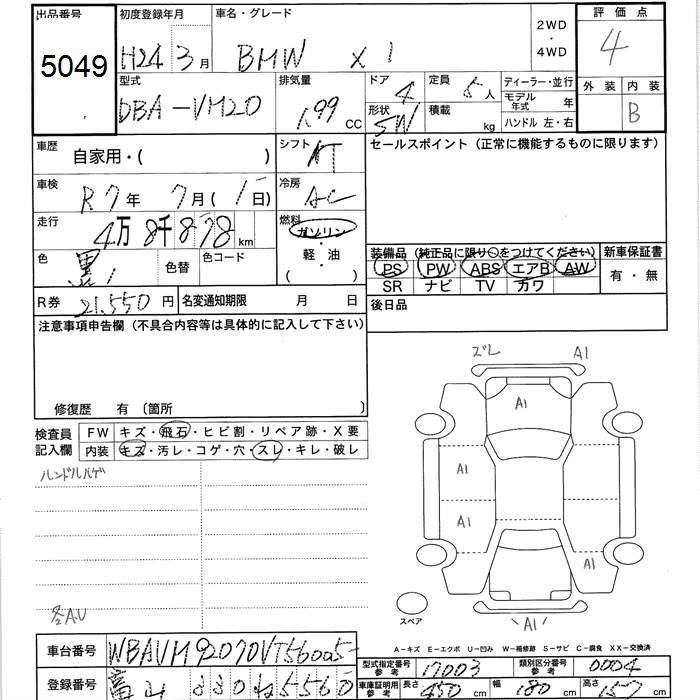 出品番号 初度登録年月 車名・グレード 2WD・4WD 評価点
5049 H24 3月 BMW X1 4
型式 排気量 ドア 定員 ディーラー・並行 外装 内装
DBA-VM20 1.99 CC 4 5人 モデル年式 年 B
形状 SW 積載 kg ハンドル 左・右
車歴 自家用・( ) シフト AT セールスポイント(正常に機能するものに限ります)
車検 R7年 7月(1日) 冷房 AC
走行 4万8千878km 燃料 ガソリン・軽・油( )
色 黒 色替 色コード 装備品(純正品に限り○をつけてください) 新車保証書
PS PW ABS エアB AW 有・無
SR ナビ TV カワ
R券 21,550円 名変通知期限 月 日 後日品
注意事項申告欄(不具合内容等は具体的に記入して下さい)
ズレ A1
A1
修復歴 有〔箇所 〕
検査員記入欄 FW キズ・飛石・ヒビ割・リペア跡・X要
内装 キズ・汚レ・コゲ・穴・スレ・キレ・破レ
ハンドルハゲ
A1
A1
A1
スペア
各AU
A1
A−キズ E−エクボ U−凹み W−補修跡 S−サビ C−腐食 XX−交換済
車台番号 WBAVM92070VT56005
型式指定番号 参考 17003 類別区分番号 参考 0004
登録番号 富山 330 ね 5560
車庫証明用 参考 長さ 450cm 幅 180cm 高さ 157cm